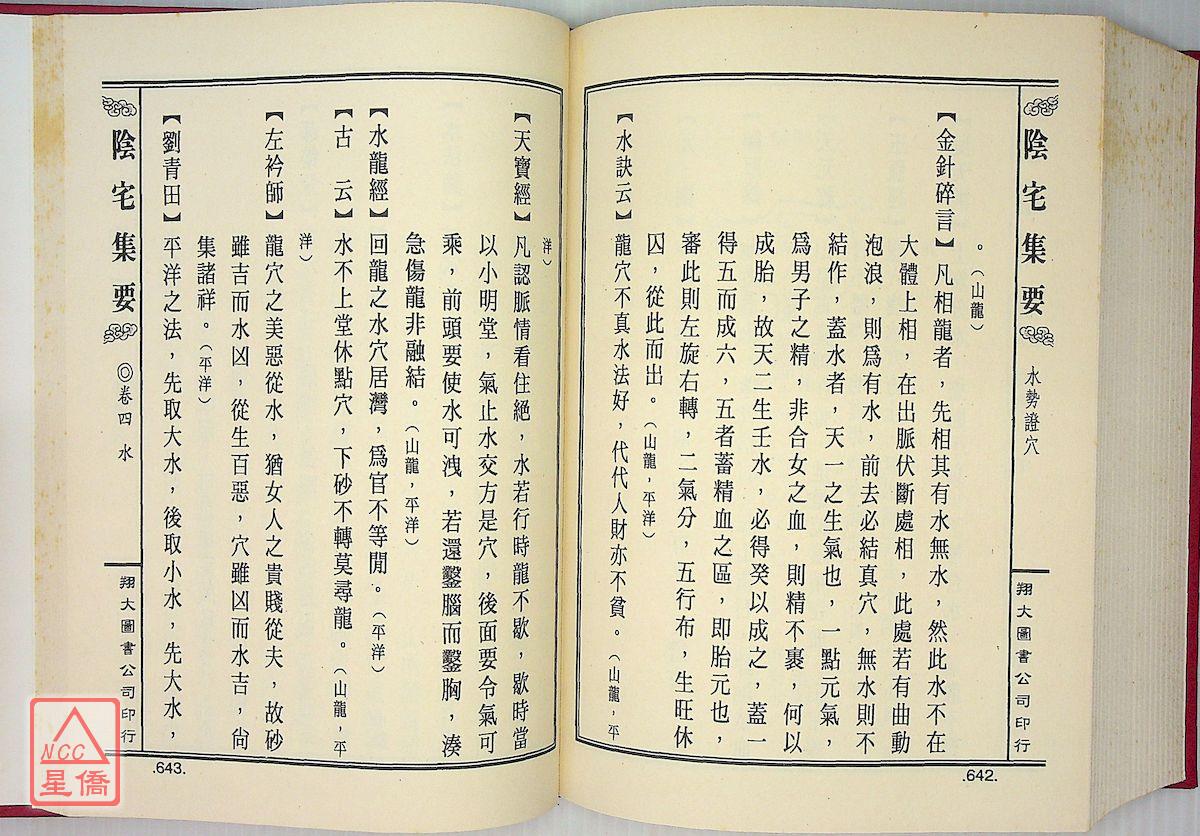 陰宅集要
水勢證穴
翔大圖書公司印行
。（山龍）
【金針碎言】凡相龍者，先相其有水無水，然此水不在
大體上相，在出脈伏斷處相，此處若有曲動
泡浪，則爲有水，前去必結真穴，無水則不
結作，蓋水者，天一之生氣也，一點元氣，
爲男子之精，非合女之血，則精不裹，何以
成胎，故天二生壬水，必得癸以成之，蓋一
得五而成六，五者蓄精血之區，即胎元也，
審此則左旋右轉，二氣分，五行布，生旺休
囚，從此而出。（山龍，平洋）
【水訣云】龍穴不真水法好，代代人財亦不貧。（山龍，平
.642.
洋）
【天寶經】凡認脈情看住絕，水若行時龍不歇，歇時當
以小明堂，氣止水交方是穴，後面要令氣可
乘，前頭要使水可洩，若還鑿腦而鑿胸，湊
急傷龍非融結。（山龍，平洋）
【水龍經】回龍之水穴居灣，爲官不等閒。（平洋）
【古　云】水不上堂休點穴，下砂不轉莫尋龍。（山龍，平
洋）
【左衿師】龍穴之美惡從水，猶女人之貴賤從夫，故砂
雖吉而水凶，從生百惡，穴雖凶而水吉，尙
集諸祥。（平洋）
【劉青田】平洋之法，先取大水，後取小水，先大水，
陰宅集要
◎卷四　水
翔大圖書公司印行
.643.
NCC
星僑